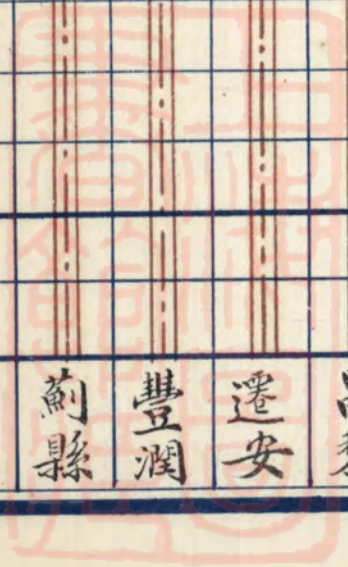 遷安
豐潤
薊縣